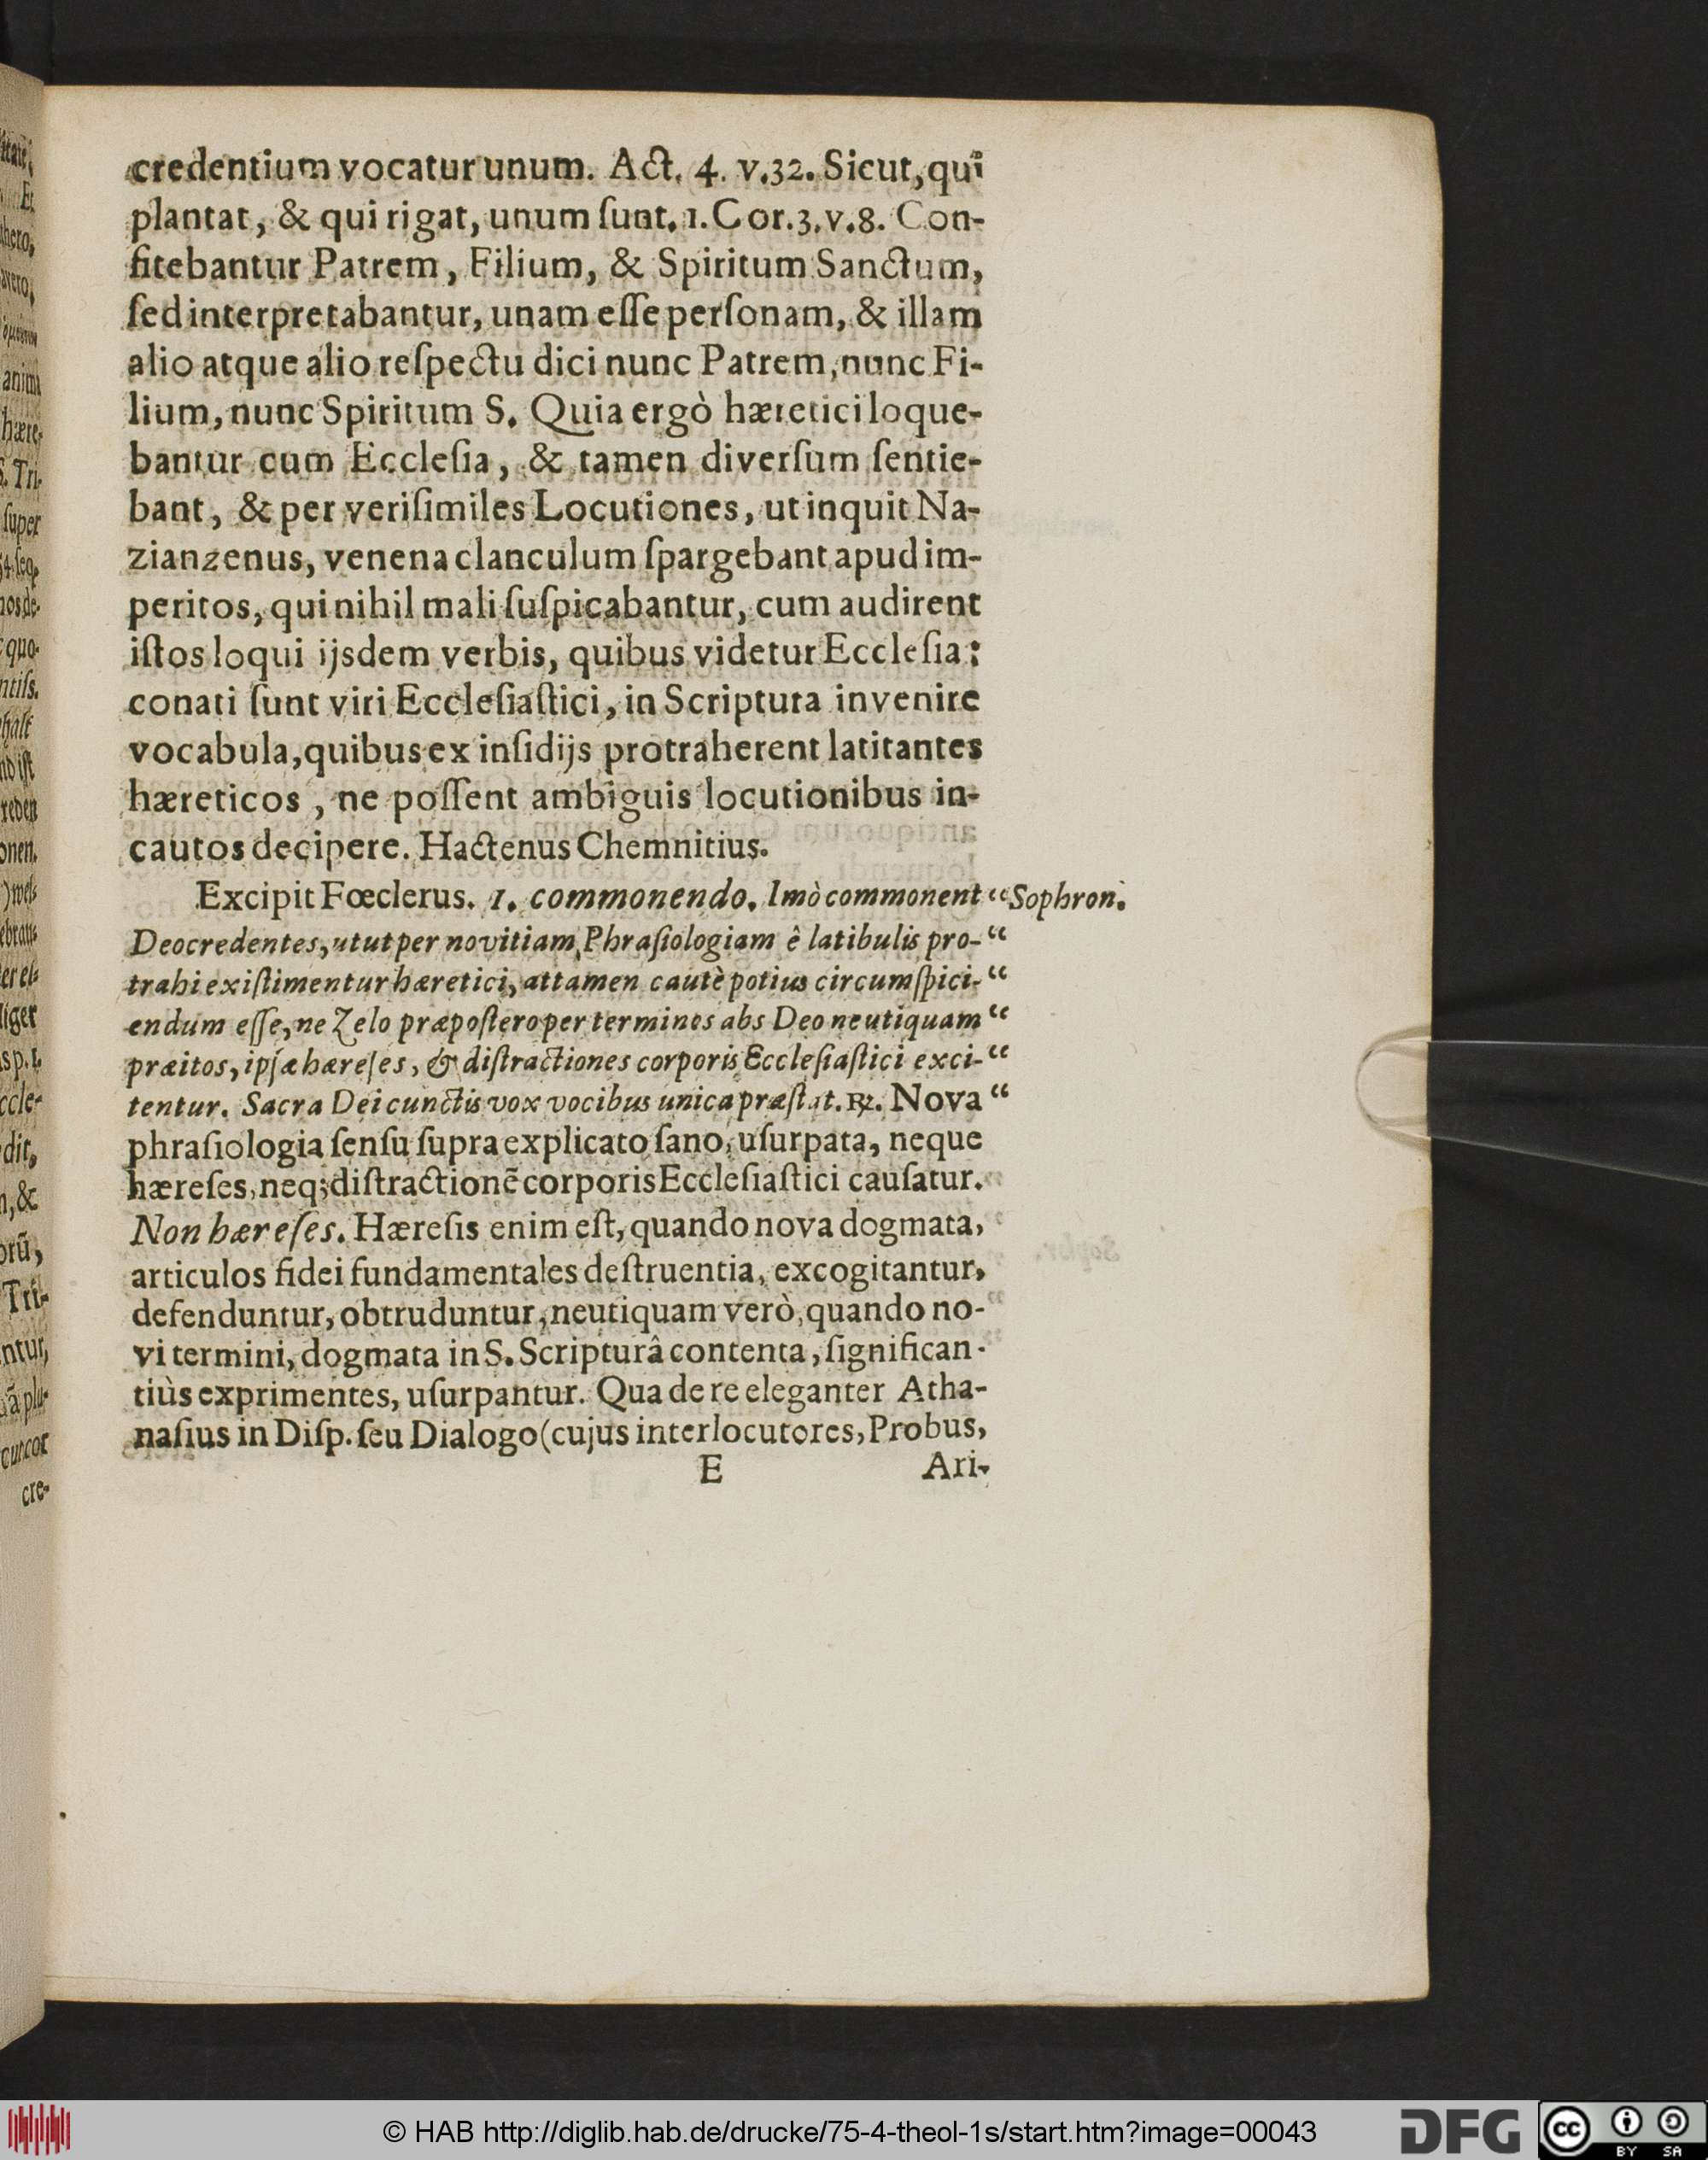 credentium vocatur unum. Act. 4. v.32. Sicut, qui
plantat, & qui rigat, unum ſunt. 1. Cor.3.v.8. Con-
fitebantur Patrem, Filium, & Spiritum Sanctum,
ſed interpretabantur, unam eſſe perſonam, & illam
alio atque alio reſpectu dici nunc Patrem, nunc Fi-
lium, nunc Spiritum S. Quia ergò hæretici loque-
bantur cum Eccleſia, & tamen diverſum ſentie-
bant, & per veriſimiles Locutiones, ut inquit Na-
zianzenus, venena clanculum ſpargebant apud im-
peritos, qui nihil mali ſuſpicabantur, cum audirent
iſtos loqui ijsdem verbis, quibus videtur Eccleſia:
conati ſunt viri Eccleſiaſtici, in Scriptura invenire
vocabula, quibus ex inſidijs protraherent latitantes
hæreticos, ne poſſent ambiguis locutionibus in-
cautos decipere. Hactenus Chemnitius.
Excipit Fœclerus. 1. commonendo. Imò commonent “ Sophron.
Deocredentes, utut per novitiam Phraſiologiam ê latibulis pro- “
trahi exiſtimentur hæretici, attamen cautè potius circumſpici- “
endum eſſe, ne Zelo præpoſtero per terminos abs Deo neutiquam “
præitos, ipſæ hæreſes, & diſtractiones corporis Eccleſiaſtici exci- “
tentur. Sacra Dei cunctis vox vocibus unica præſtat. ℞. Nova “
phraſiologia ſenſu ſupra explicato ſano, uſurpata, neque
hæreſes, neq; diſtractionẽ corporis Eccleſiaſtici cauſatur.
Non hæreſes. Hæreſis enim eſt, quando nova dogmata,
articulos fidei fundamentales deſtruentia, excogitantur,
defenduntur, obtruduntur, neutiquam verò, quando no-
vi termini, dogmata in S. Scripturâ contenta, ſignifican-
tiùs exprimentes, uſurpantur. Qua de re eleganter Atha-
naſius in Diſp. ſeu Dialogo (cujus interlocutores, Probus,
E Ari-
© HAB http://diglib.hab.de/drucke/75-4-theol-1s/start.htm?image=00043
DFG
cc BY SA